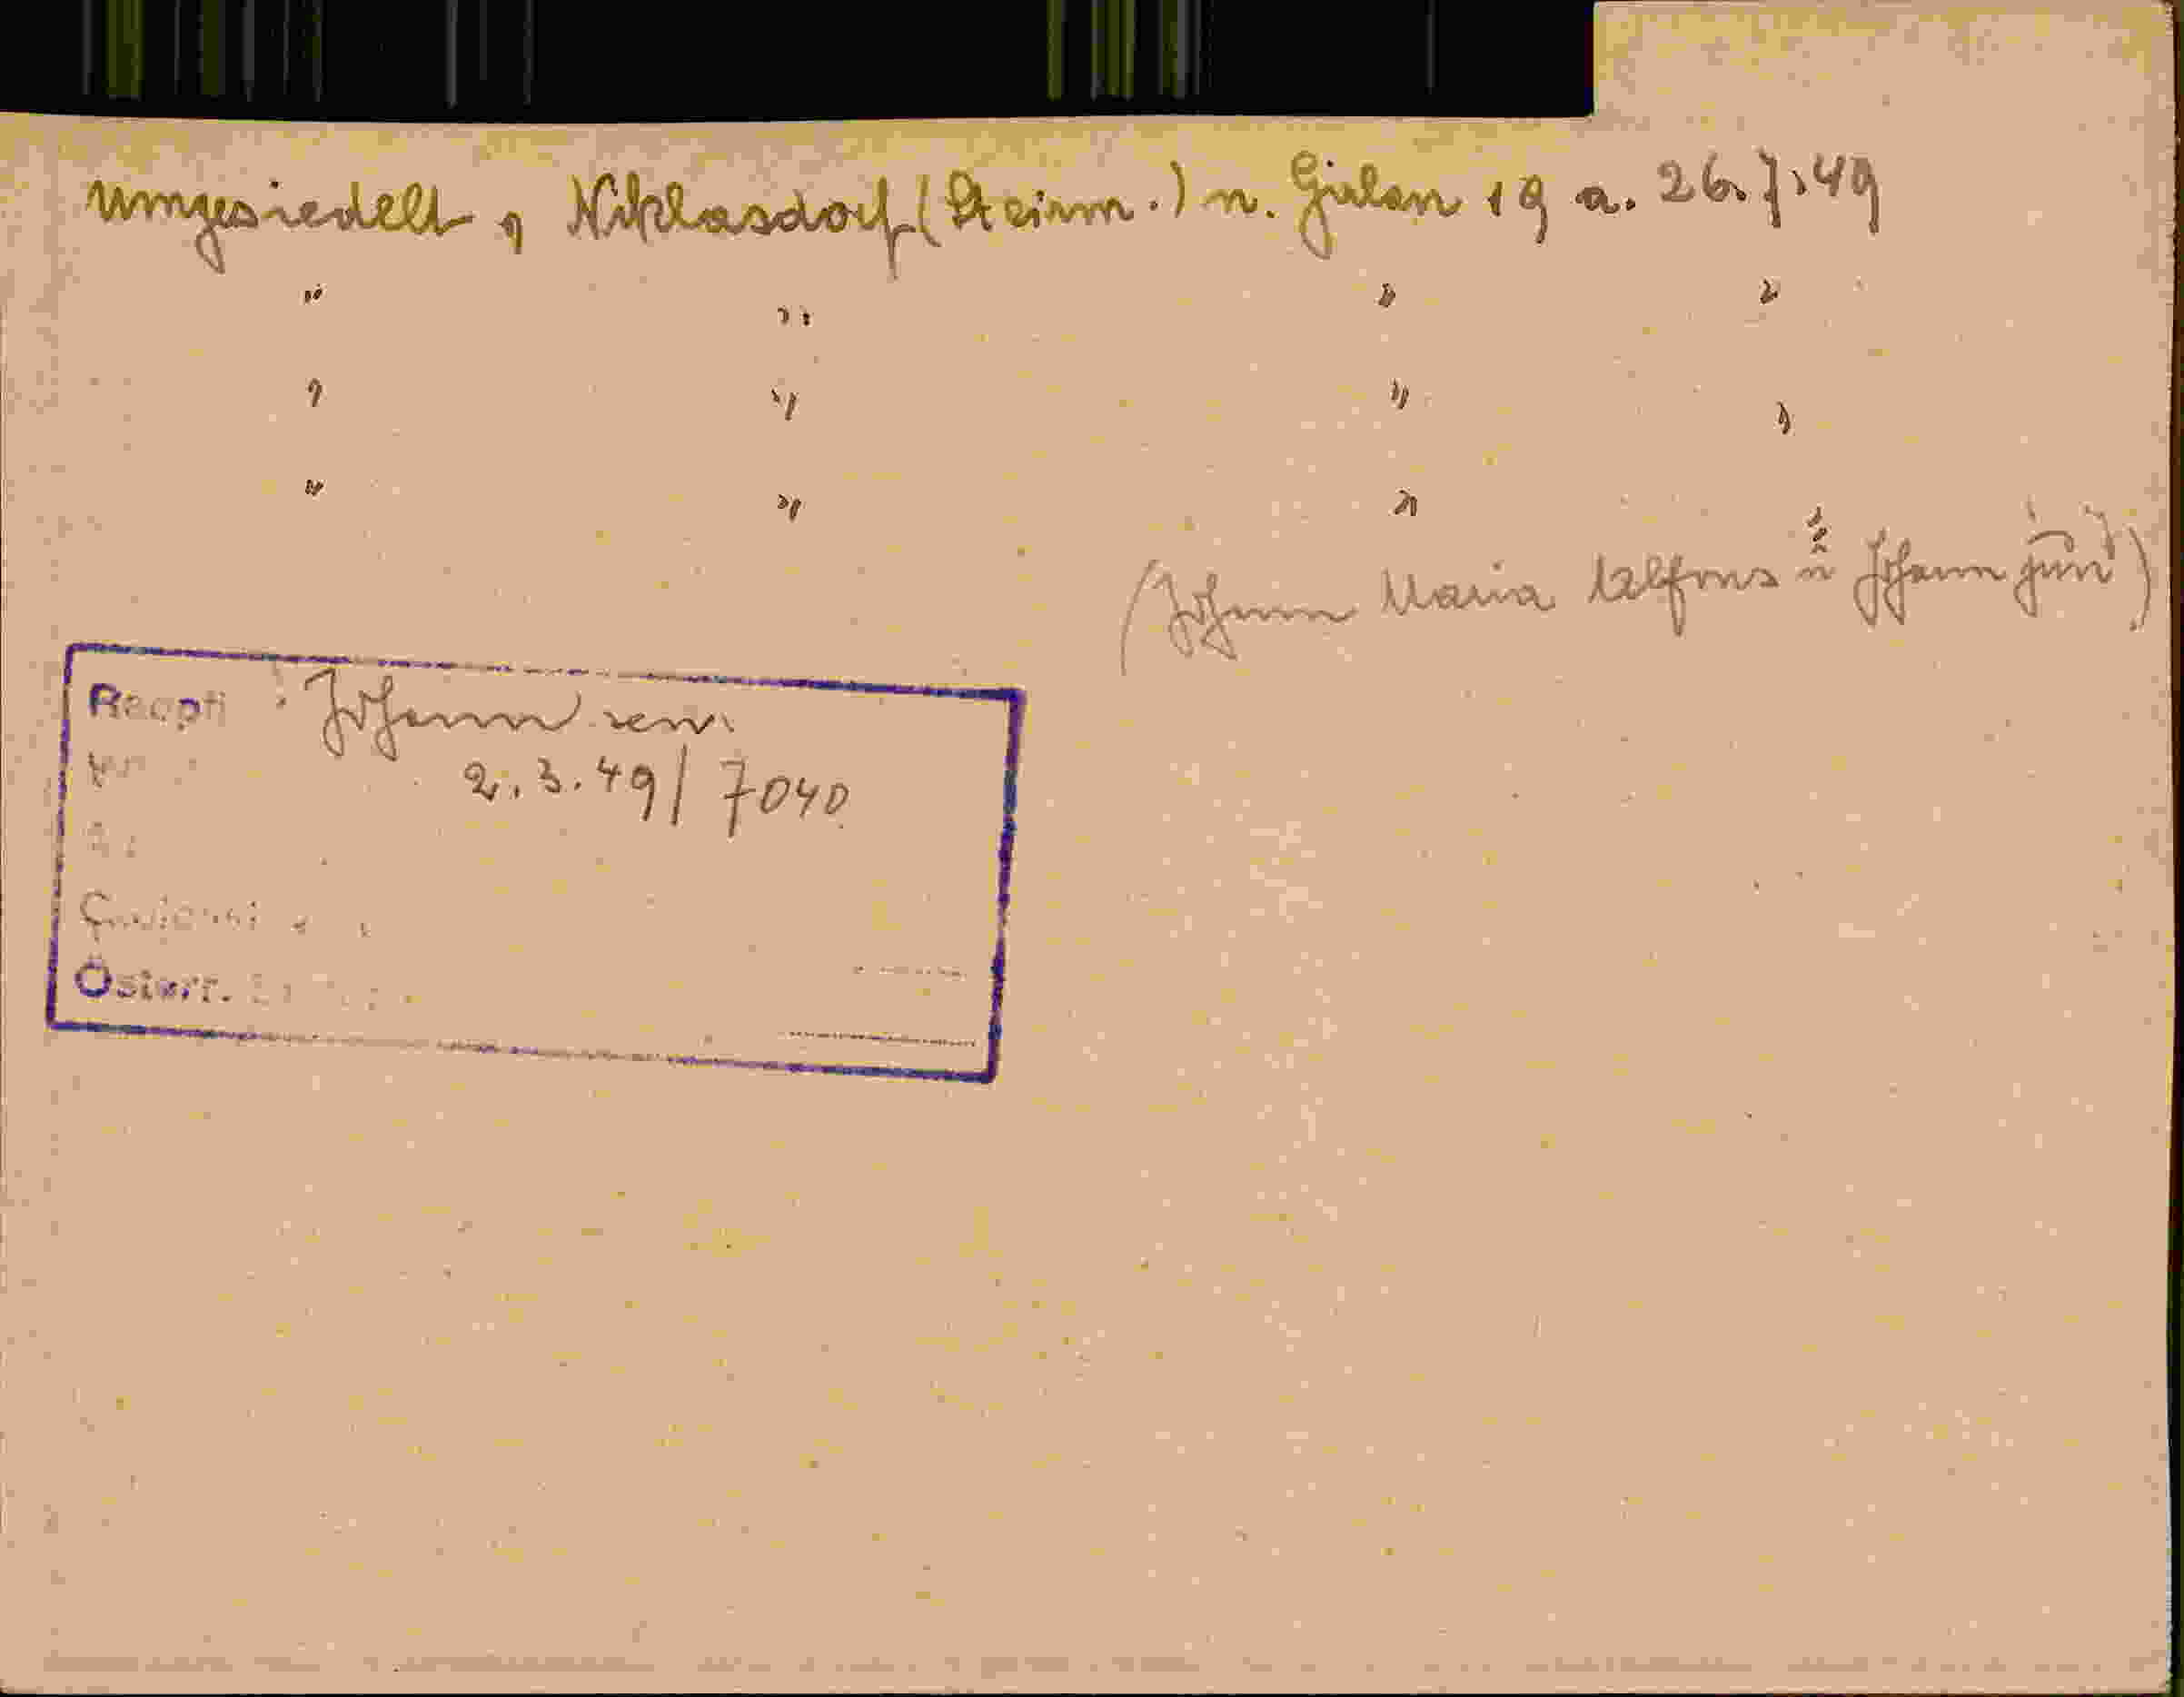 umgesiedelt, Niklasdorf (Steirm.) n. Girlan 19 a. 26.7.49
" " " "
" " " "
" " " "
(Johann Maria Alfons u Johann jun)
Recpti Johann sen.
2.3.49/7040
Österr.